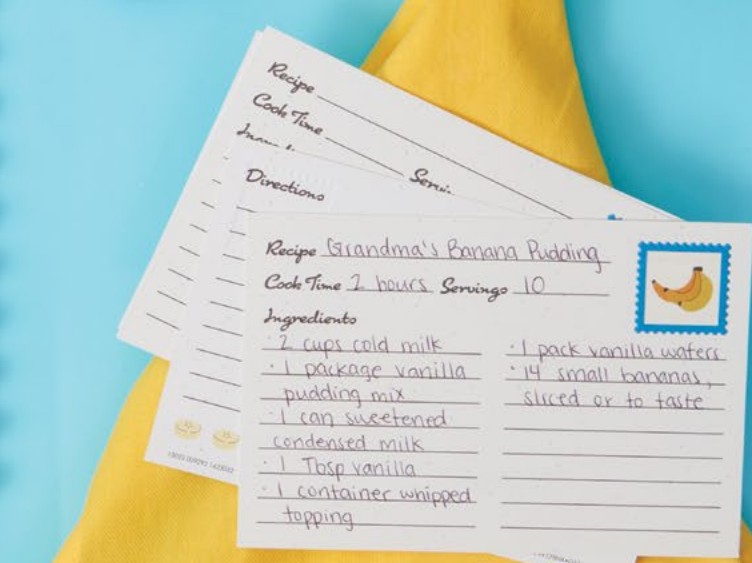 Recipe
Cook Time
Servi
Directions
Recipe Grandma's Banana Pudding
Cook Time 2 hours Servings 10
Ingredients
· 2 cups cold milk
· 1 package vanilla
pudding mix
· 1 can sweetened
condensed milk
· 1 Tbsp vanilla
· 1 container whipped
topping
· 1 pack vanilla wafers
· 14 small bananas,
sliced or to taste